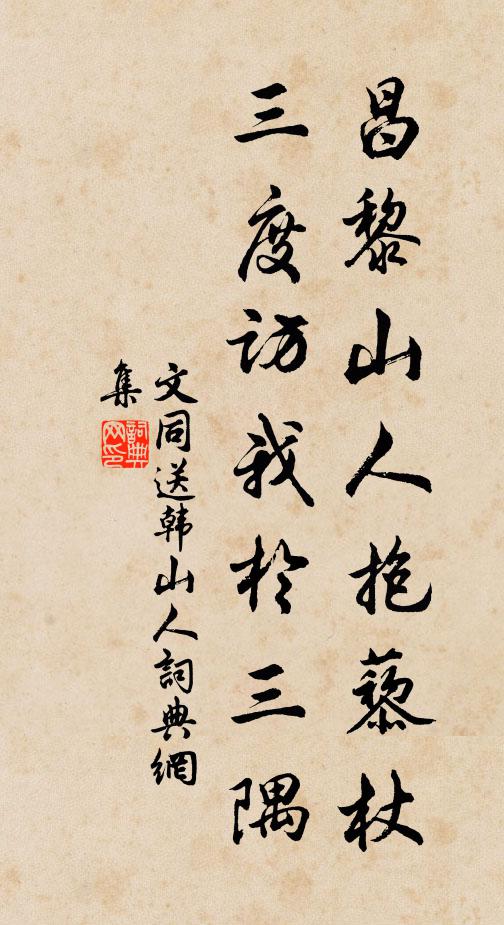 昌黎山人抱藜杖
三度访我於三隅
文同送韩山人詞典網
集
詞典
网印